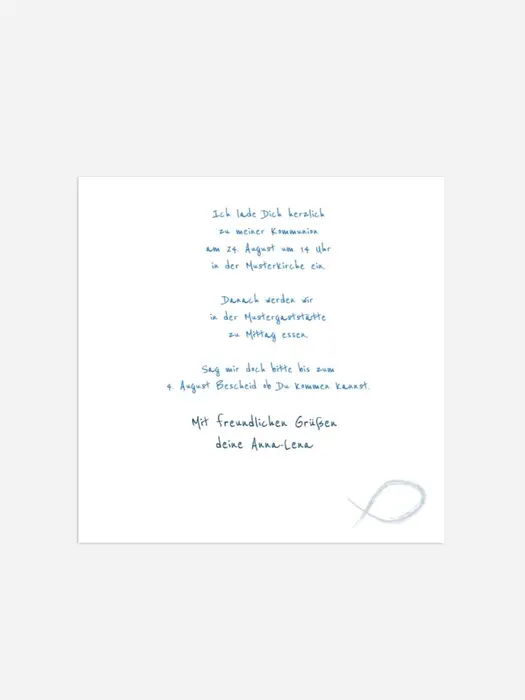 Ich lade Dich herzlich
zu meiner Kommunion
am 24. August um 14 Uhr
in der Musterkirche ein.
Danach werden wir
in der Mustergaststätte
zu Mittag essen.
Sag mir doch bitte bis zum
4. August Bescheid ob Du kommen kannst.
Mit freundlichen Grüßen
deine Anna-Lena